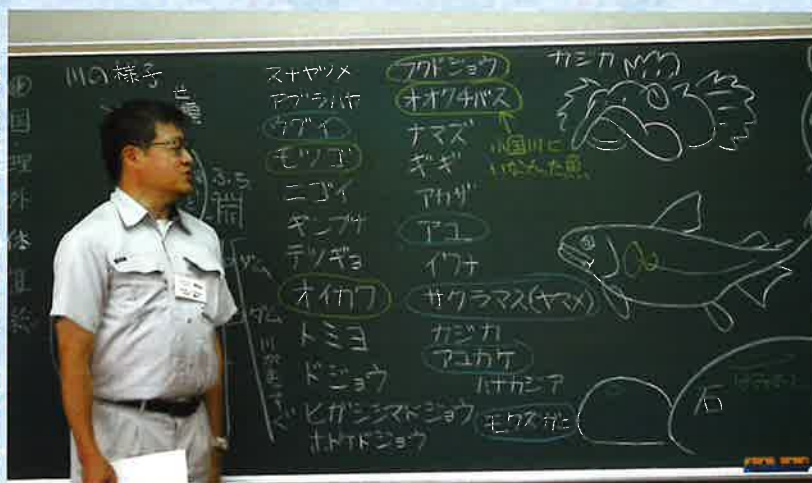 国
理
外
体
算
川の様子
ふち
ダム
ダム
スナヤツメ
アブラハヤ
ウグイ
モツゴ
ニゴイ
ギンブナ
テツギョ
オイカワ
トミヨ
ドジョウ
ヒガシシマドジョウ
ホトケドジョウ
フクドジョウ
オオクチバス
小国川に
いなかった魚
ナマズ
ギギ
アカザ
アユ
イワナ
サクラマス(ヤマメ)
カジカ
アユカケ
ハナカジカ
モクズガニ
カジカ
石